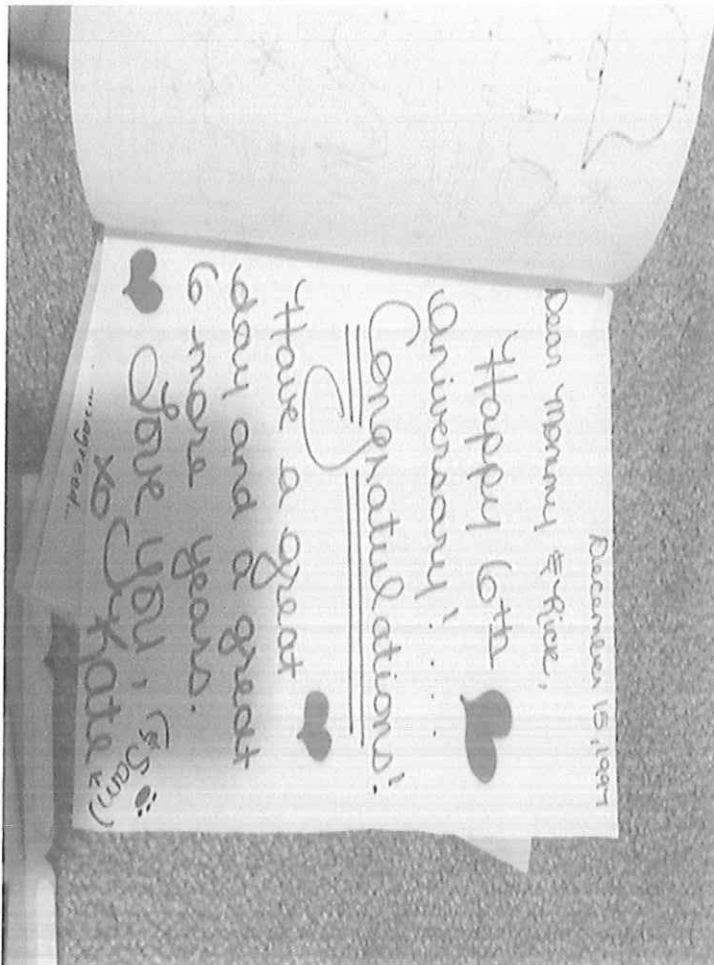 December 15, 1997
Dear Mommy & Rick,
Happy 6th
Aniversary! . . .
Congratulations!
Have a great
day and a great
6 more years.
Love you,
(& Sam)
xo Kate
...agreed...